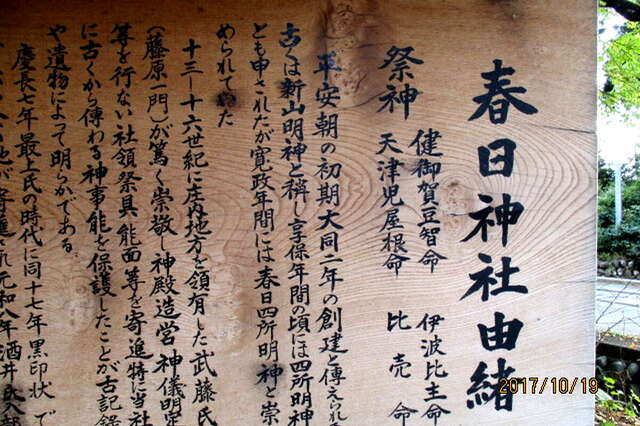 春日神社由緒
祭神 健御賀豆智命 伊波比主命
天津児屋根命 比売命
平安朝の初期大同二年の創建と傳えられ
古くは新山明神と称し享保年間の頃には四所明神
とも申されたが寛政年間には春日四所明神と崇
められていた
十三—十六世紀に庄内地方を領有した武藤氏
(藤原一門)が篤く崇敬し神殿造営 神儀明定
等を行ない社領祭具 能面 等を寄進特に当社
に古くから傳わる神事能を保護したことが古記録
や遺物によって明らかである
慶長七年最上氏の時代に同十七年黒印状 で
地が寄進され元和八年酒井氏入部
2017/10/19